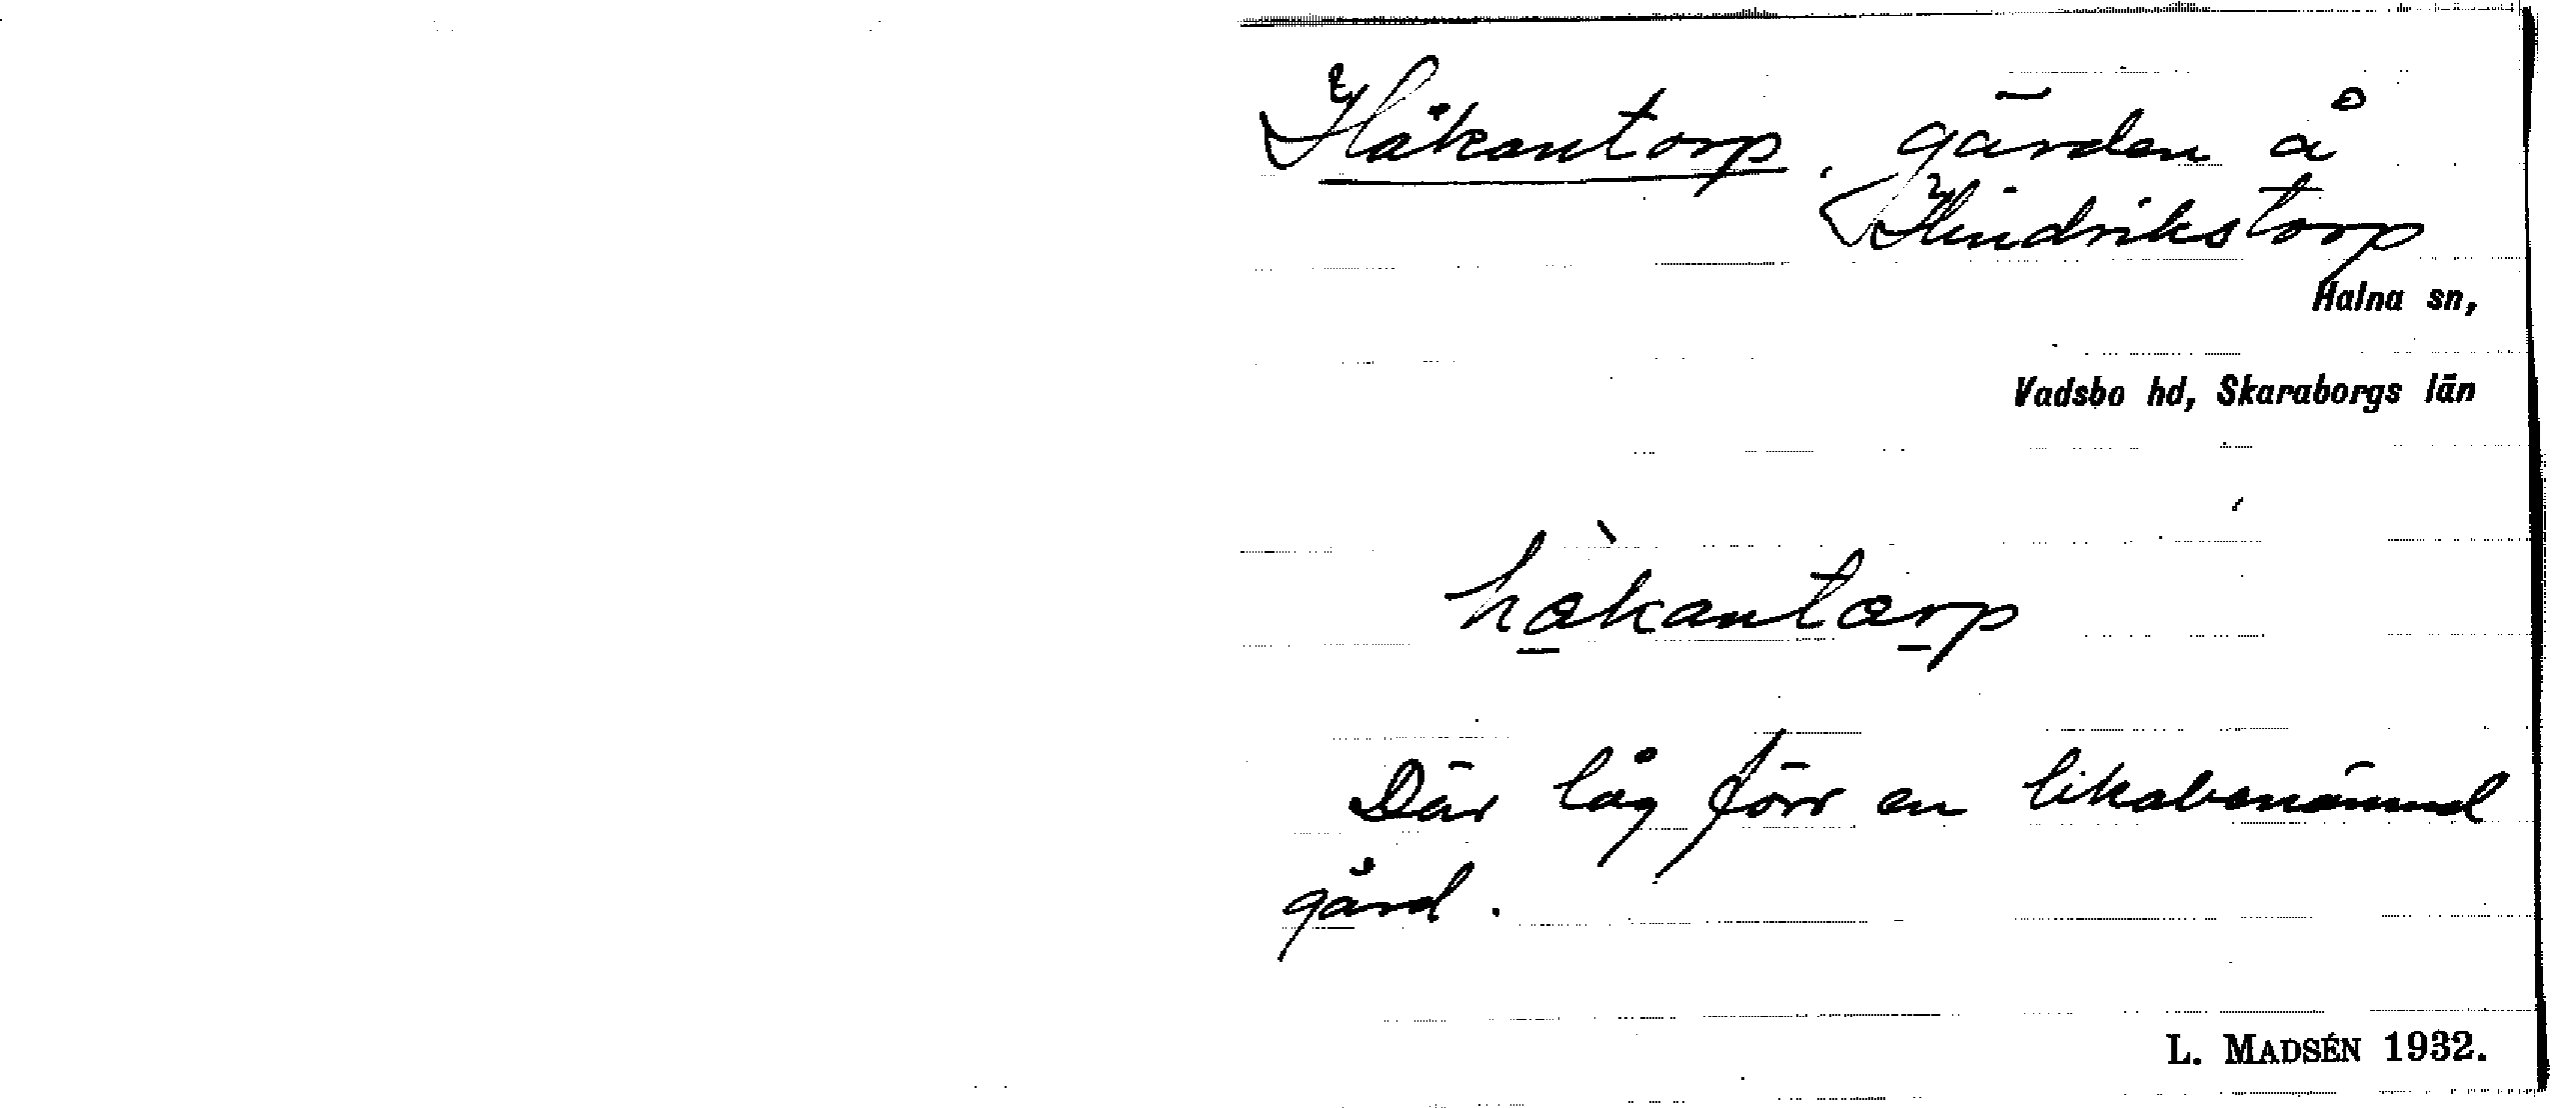 Håkantorp, gärden å
Hindrikstorp
Halna sn,
Vadsbo hd, Skaraborgs län
hòkantorp
Där låg förr en likabenämnd
gård.
L. MADSÉN 1932.